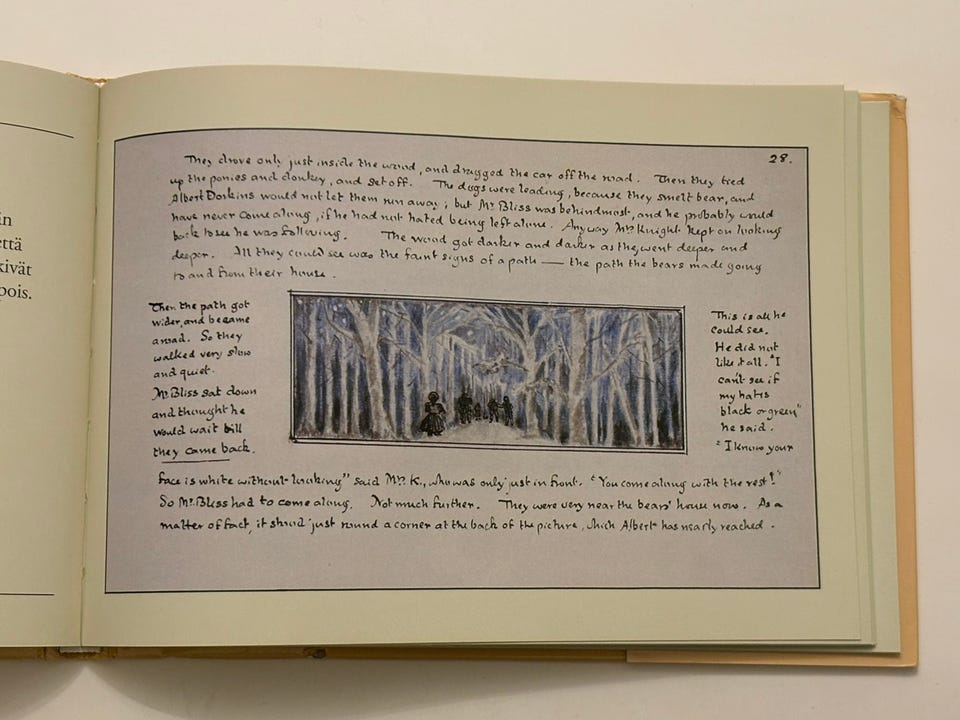 in
että
kivät
pois.
28.
They drove only just inside the wood, and dragged the car off the road. Then they tied
up the ponies and donkey, and set off. The dogs were leading, because they smelt bear, and
Albert Dorkins would not let them run away; but Mr. Bliss was behindmost, and he probably would
have never come along, if he had not hated being left alone. Anyway Mrs. Knight kept on looking
back to see he was following. The wood got darker and darker as they went deeper and
deeper. All they could see was the faint signs of a path — the path the bears made going
to and from their house.
Then the path got
wider, and became
a road. So they
walked very slow
and quiet.
Mr. Bliss sat down
and thought he
would wait till
they came back.
This is all he
could see.
He did not
like it all. "I
can't see if
my hat is
black or green"
he said.
"I know your
face is white without looking" said Mrs. K., who was only just in front. "You come along with the rest!"
So Mr. Bliss had to come along. Not much further. They were very near the bears' house now. As a
matter of fact, it stood just round a corner at the back of the picture, which Albert has nearly reached.